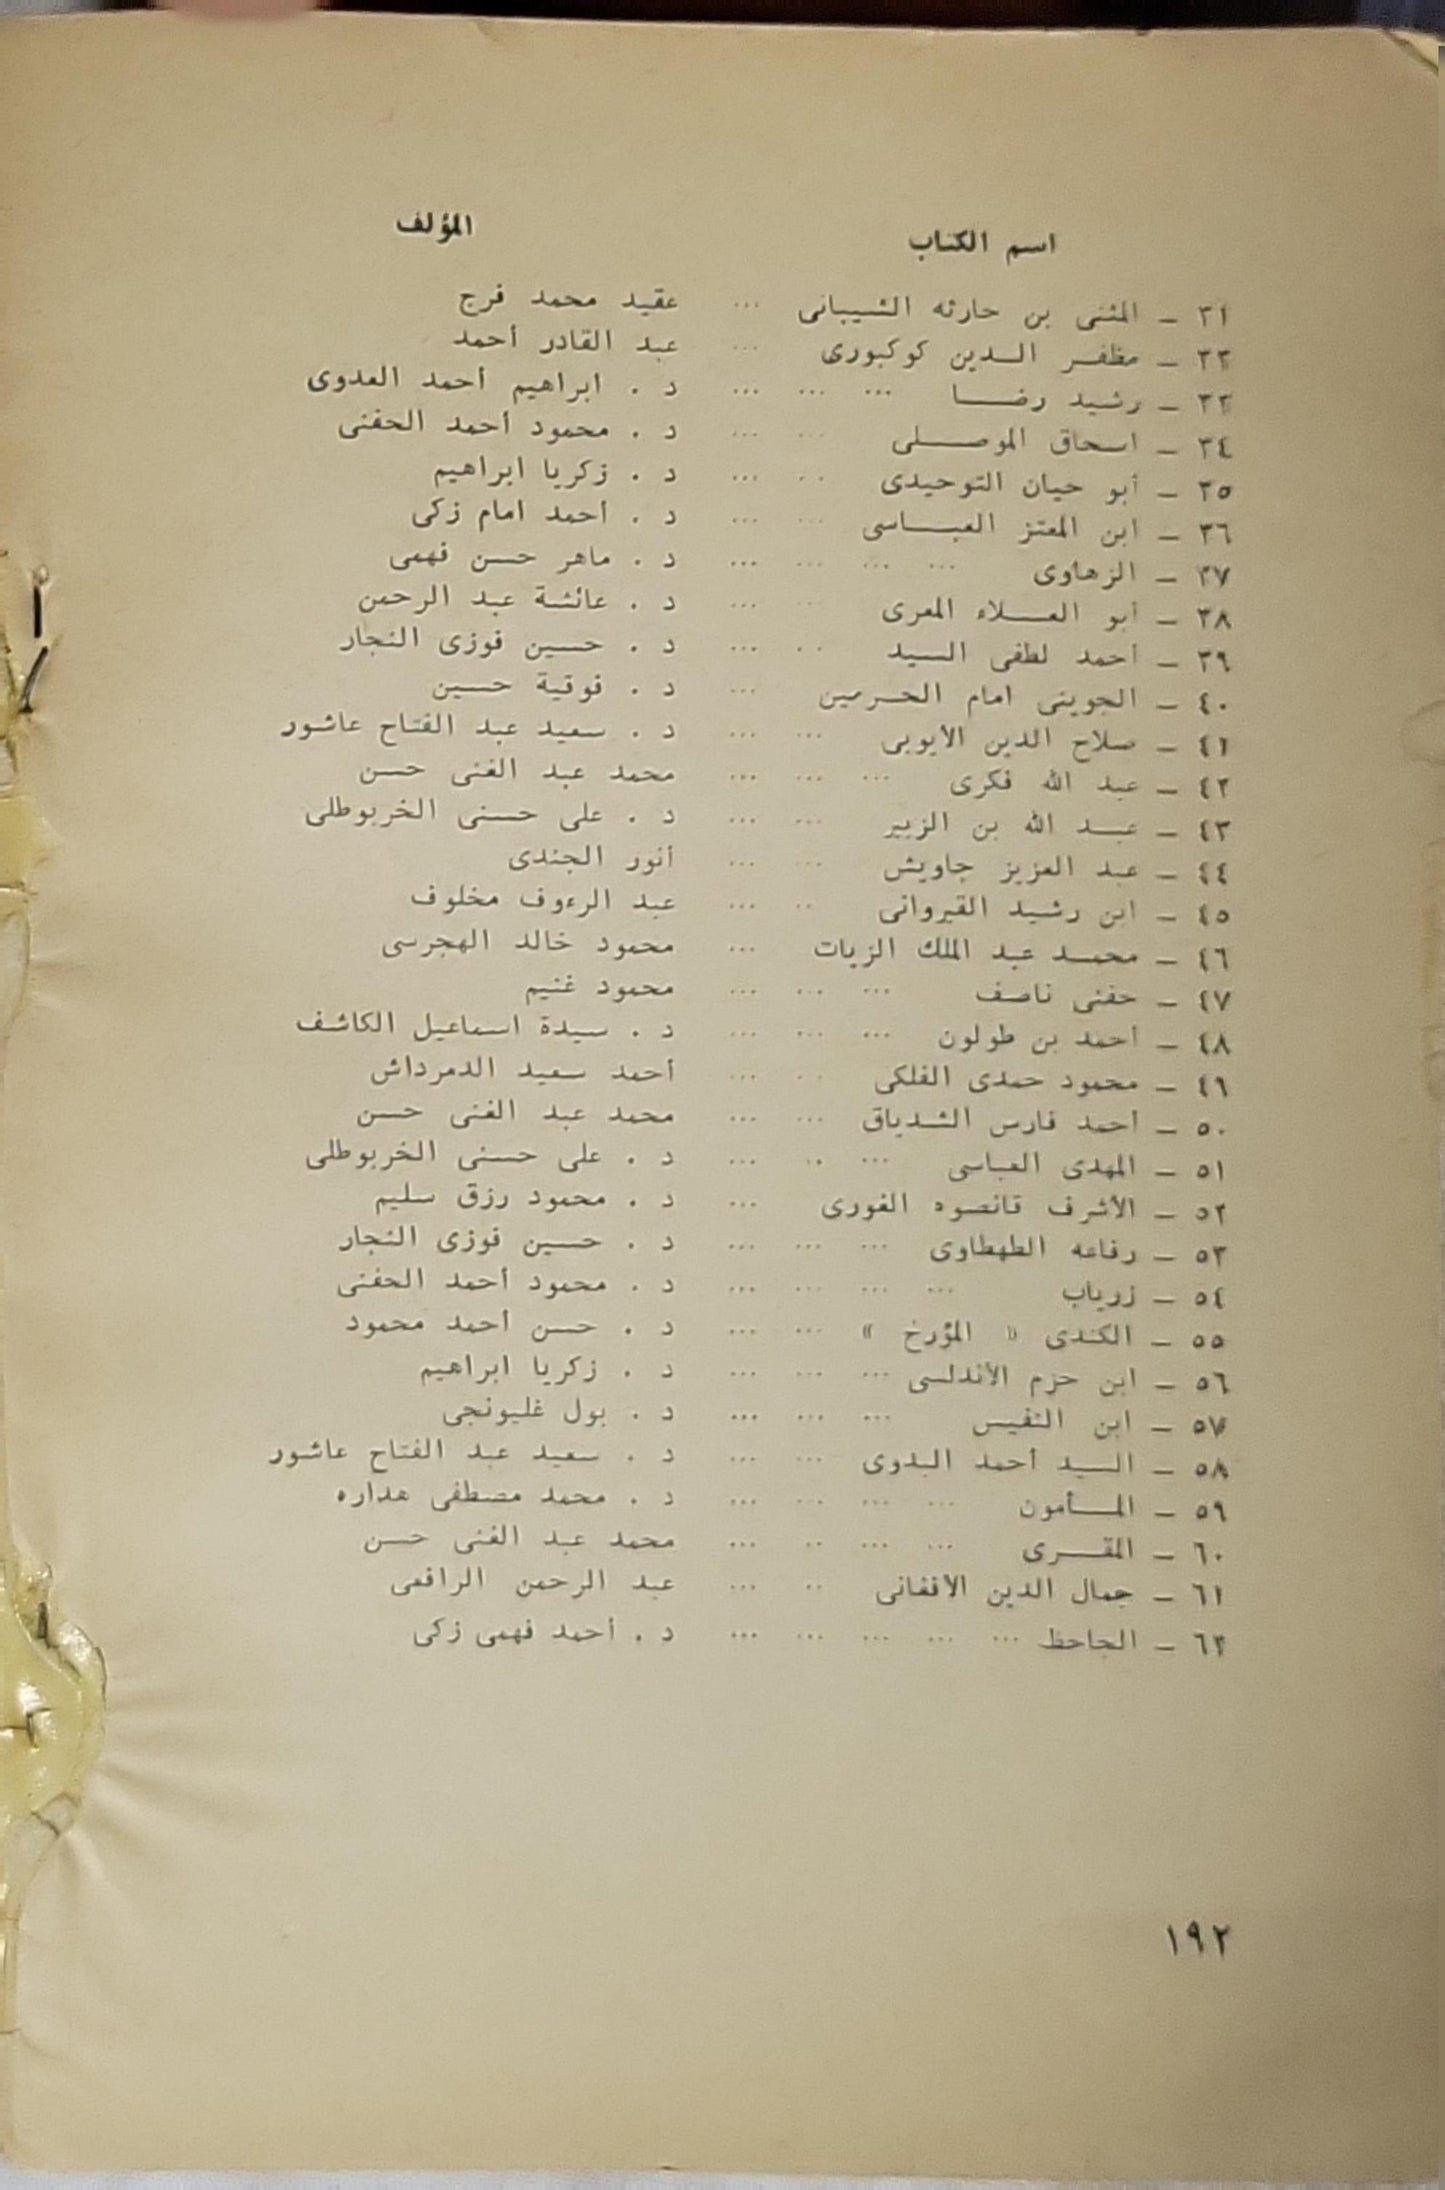 اسم الكتاب المؤلف
٣١ – المثنى بن حارثه الشيبانى ... عقيد محمد فرج
٣٢ – مظفر الدين كوكبورى ... عبد القادر أحمد
٣٣ – رشيد رضا ... ... ... د . ابراهيم أحمد العدوى
٣٤ – اسحاق الموصلى ... ... د . محمود أحمد الحفنى
٣٥ – أبو حيان التوحيدى ... ... د . زكريا ابراهيم
٣٦ – ابن المعتز العباسى ... ... د . أحمد امام زكى
٣٧ – الزهاوى ... ... ... ... د . ماهر حسن فهمى
٣٨ – أبو العلاء المعرى ... ... د . عائشة عبد الرحمن
٣٩ – أحمد لطفى السيد ... ... د . حسين فوزى النجار
٤٠ – الجوينى امام الحرمين ... د . فوقية حسين
٤١ – صلاح الدين الأيوبى ... ... د . سعيد عبد الفتاح عاشور
٤٢ – عبد الله فكرى ... ... ... محمد عبد الغنى حسن
٤٣ – عبد الله بن الزبير ... ... د . على حسنى الخربوطلى
٤٤ – عبد العزيز جاويش ... ... أنور الجندى
٤٥ – ابن رشيد القيروانى ... ... عبد الرءوف مخلوف
٤٦ – محمد عبد الملك الزيات ... محمود خالد الهجرسى
٤٧ – حفنى ناصف ... ... ... محمود غنيم
٤٨ – أحمد بن طولون ... ... ... د . سيدة اسماعيل الكاشف
٤٩ – محمود حمدى الفلكى ... ... أحمد سعيد الدمرداش
٥٠ – أحمد فارس الشدياق ... ... محمد عبد الغنى حسن
٥١ – المهدى العباسى ... ... ... د . على حسنى الخربوطلى
٥٢ – الأشرف قانصوه الغورى ... د . محمود رزق سليم
٥٣ – رفاعه الطهطاوى ... ... ... د . حسين فوزى النجار
٥٤ – زرياب ... ... ... ... د . محمود أحمد الحفنى
٥٥ – الكندى « المؤرخ » ... ... د . حسن أحمد محمود
٥٦ – ابن حزم الأندلسى ... ... ... د . زكريا ابراهيم
٥٧ – ابن النفيس ... ... ... د . بول غليونجى
٥٨ – السيد أحمد البدوى ... ... د . سعيد عبد الفتاح عاشور
٥٩ – المأمون ... ... ... ... د . محمد مصطفى هداره
٦٠ – المقرى ... ... ... ... محمد عبد الغنى حسن
٦١ – جمال الدين الأفغانى ... ... عبد الرحمن الرافعى
٦٢ – الجاحظ ... ... ... ... ... د . أحمد فهمى زكى
١٩٢